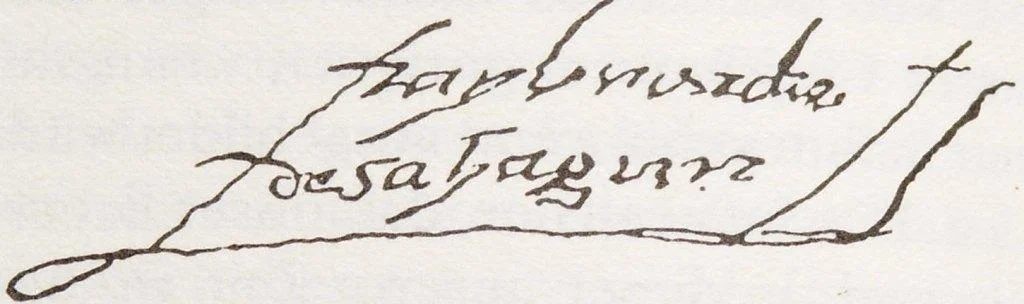 fray bernardio
de sahagun